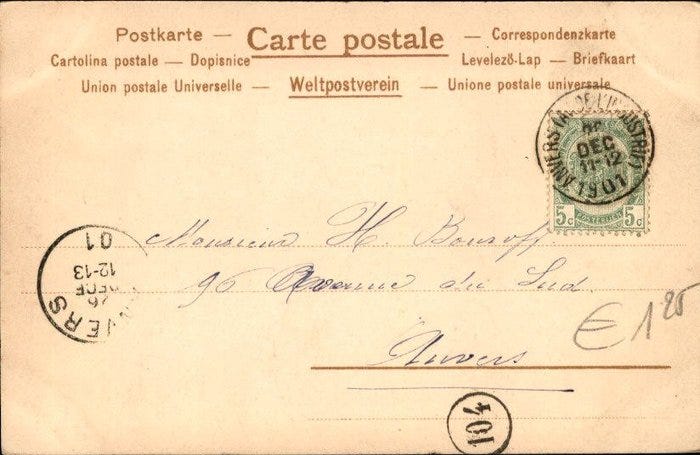 Postkarte — Carte postale — Correspondenzkarte
Cartolina postale — Dopisnice Levelező-Lap — Briefkaart
Union postale Universelle — Weltpostverein — Unione postale universale
ANVERS DE L'INDUSTRIE)
DEC
11-12
1901
5c 5c
Monsieur H.
96 Avenue du Sud
Anvers
ANVERS
26
DECE
12-13
01
€ 1 25
104